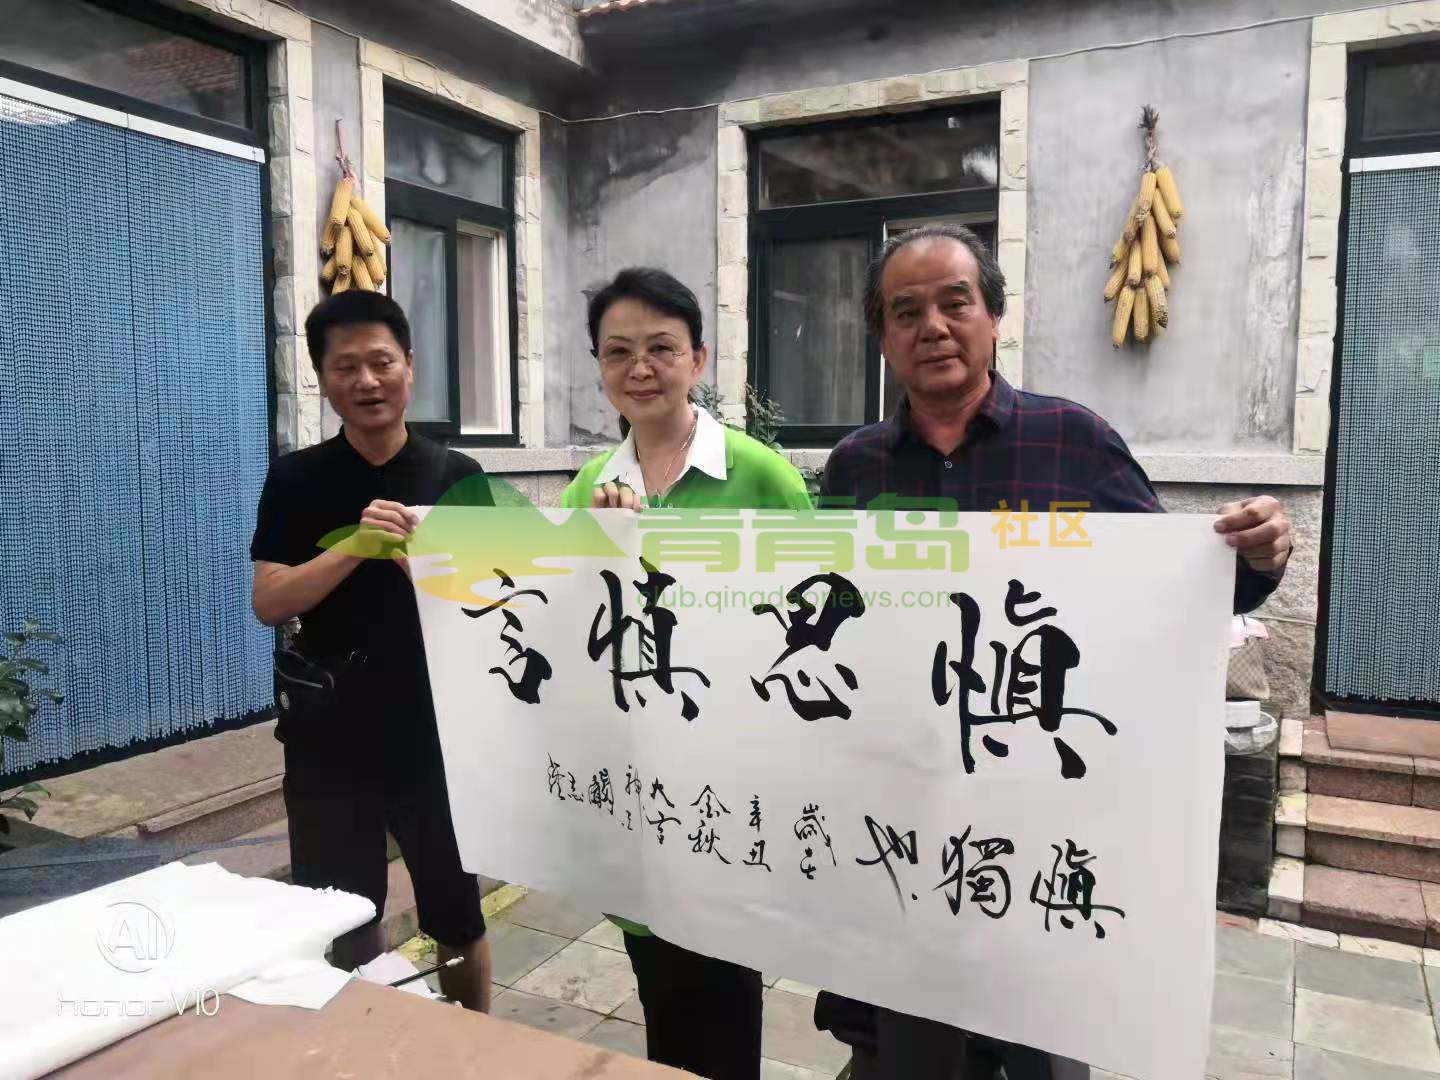 青青岛 社区
club.qingdaonews.com
慎思慎言
慎獨也
歲在
辛丑
金秋
AI
honor V10